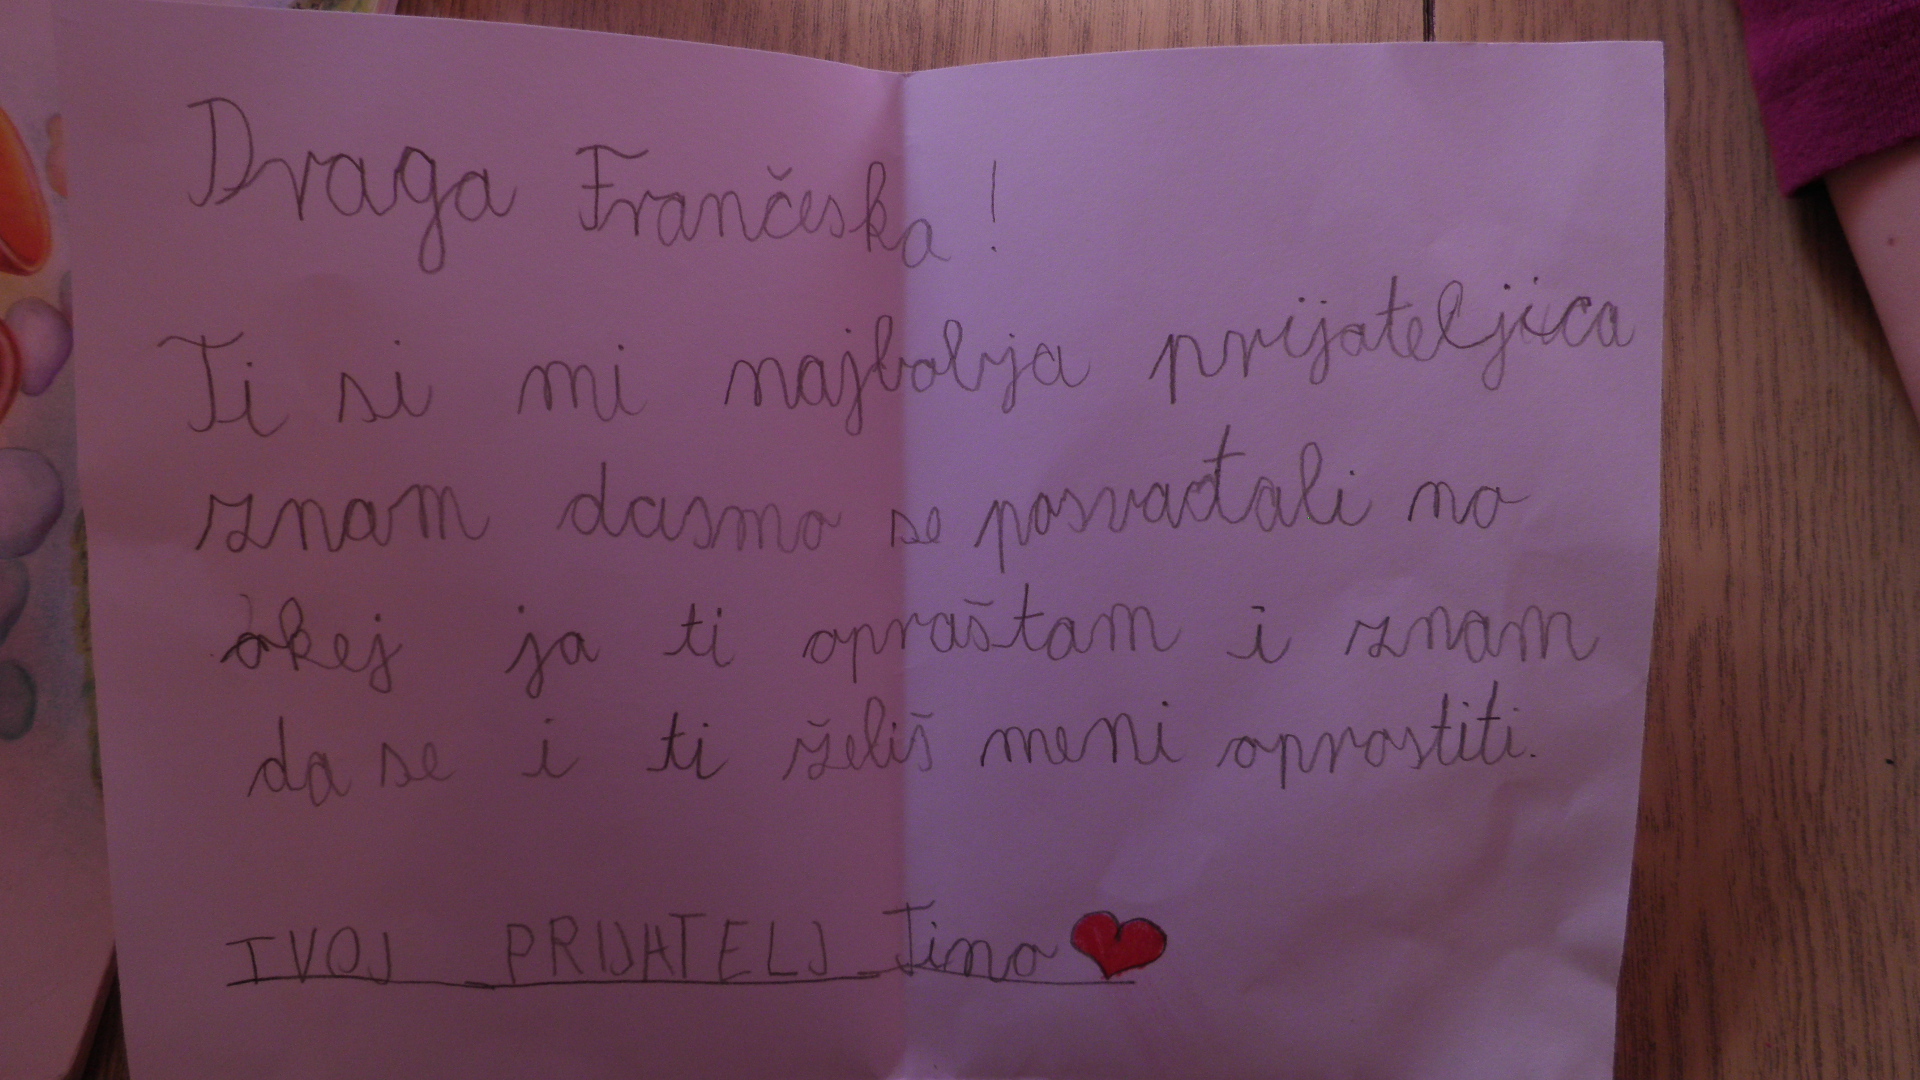 Draga Frančeska!
Ti si mi najbolja prijateljica
znam dasmo se posvađali no
okej ja ti opraštam i znam
da se i ti želiš meni oprostiti.
TVOJ PRIJATELJ Tino